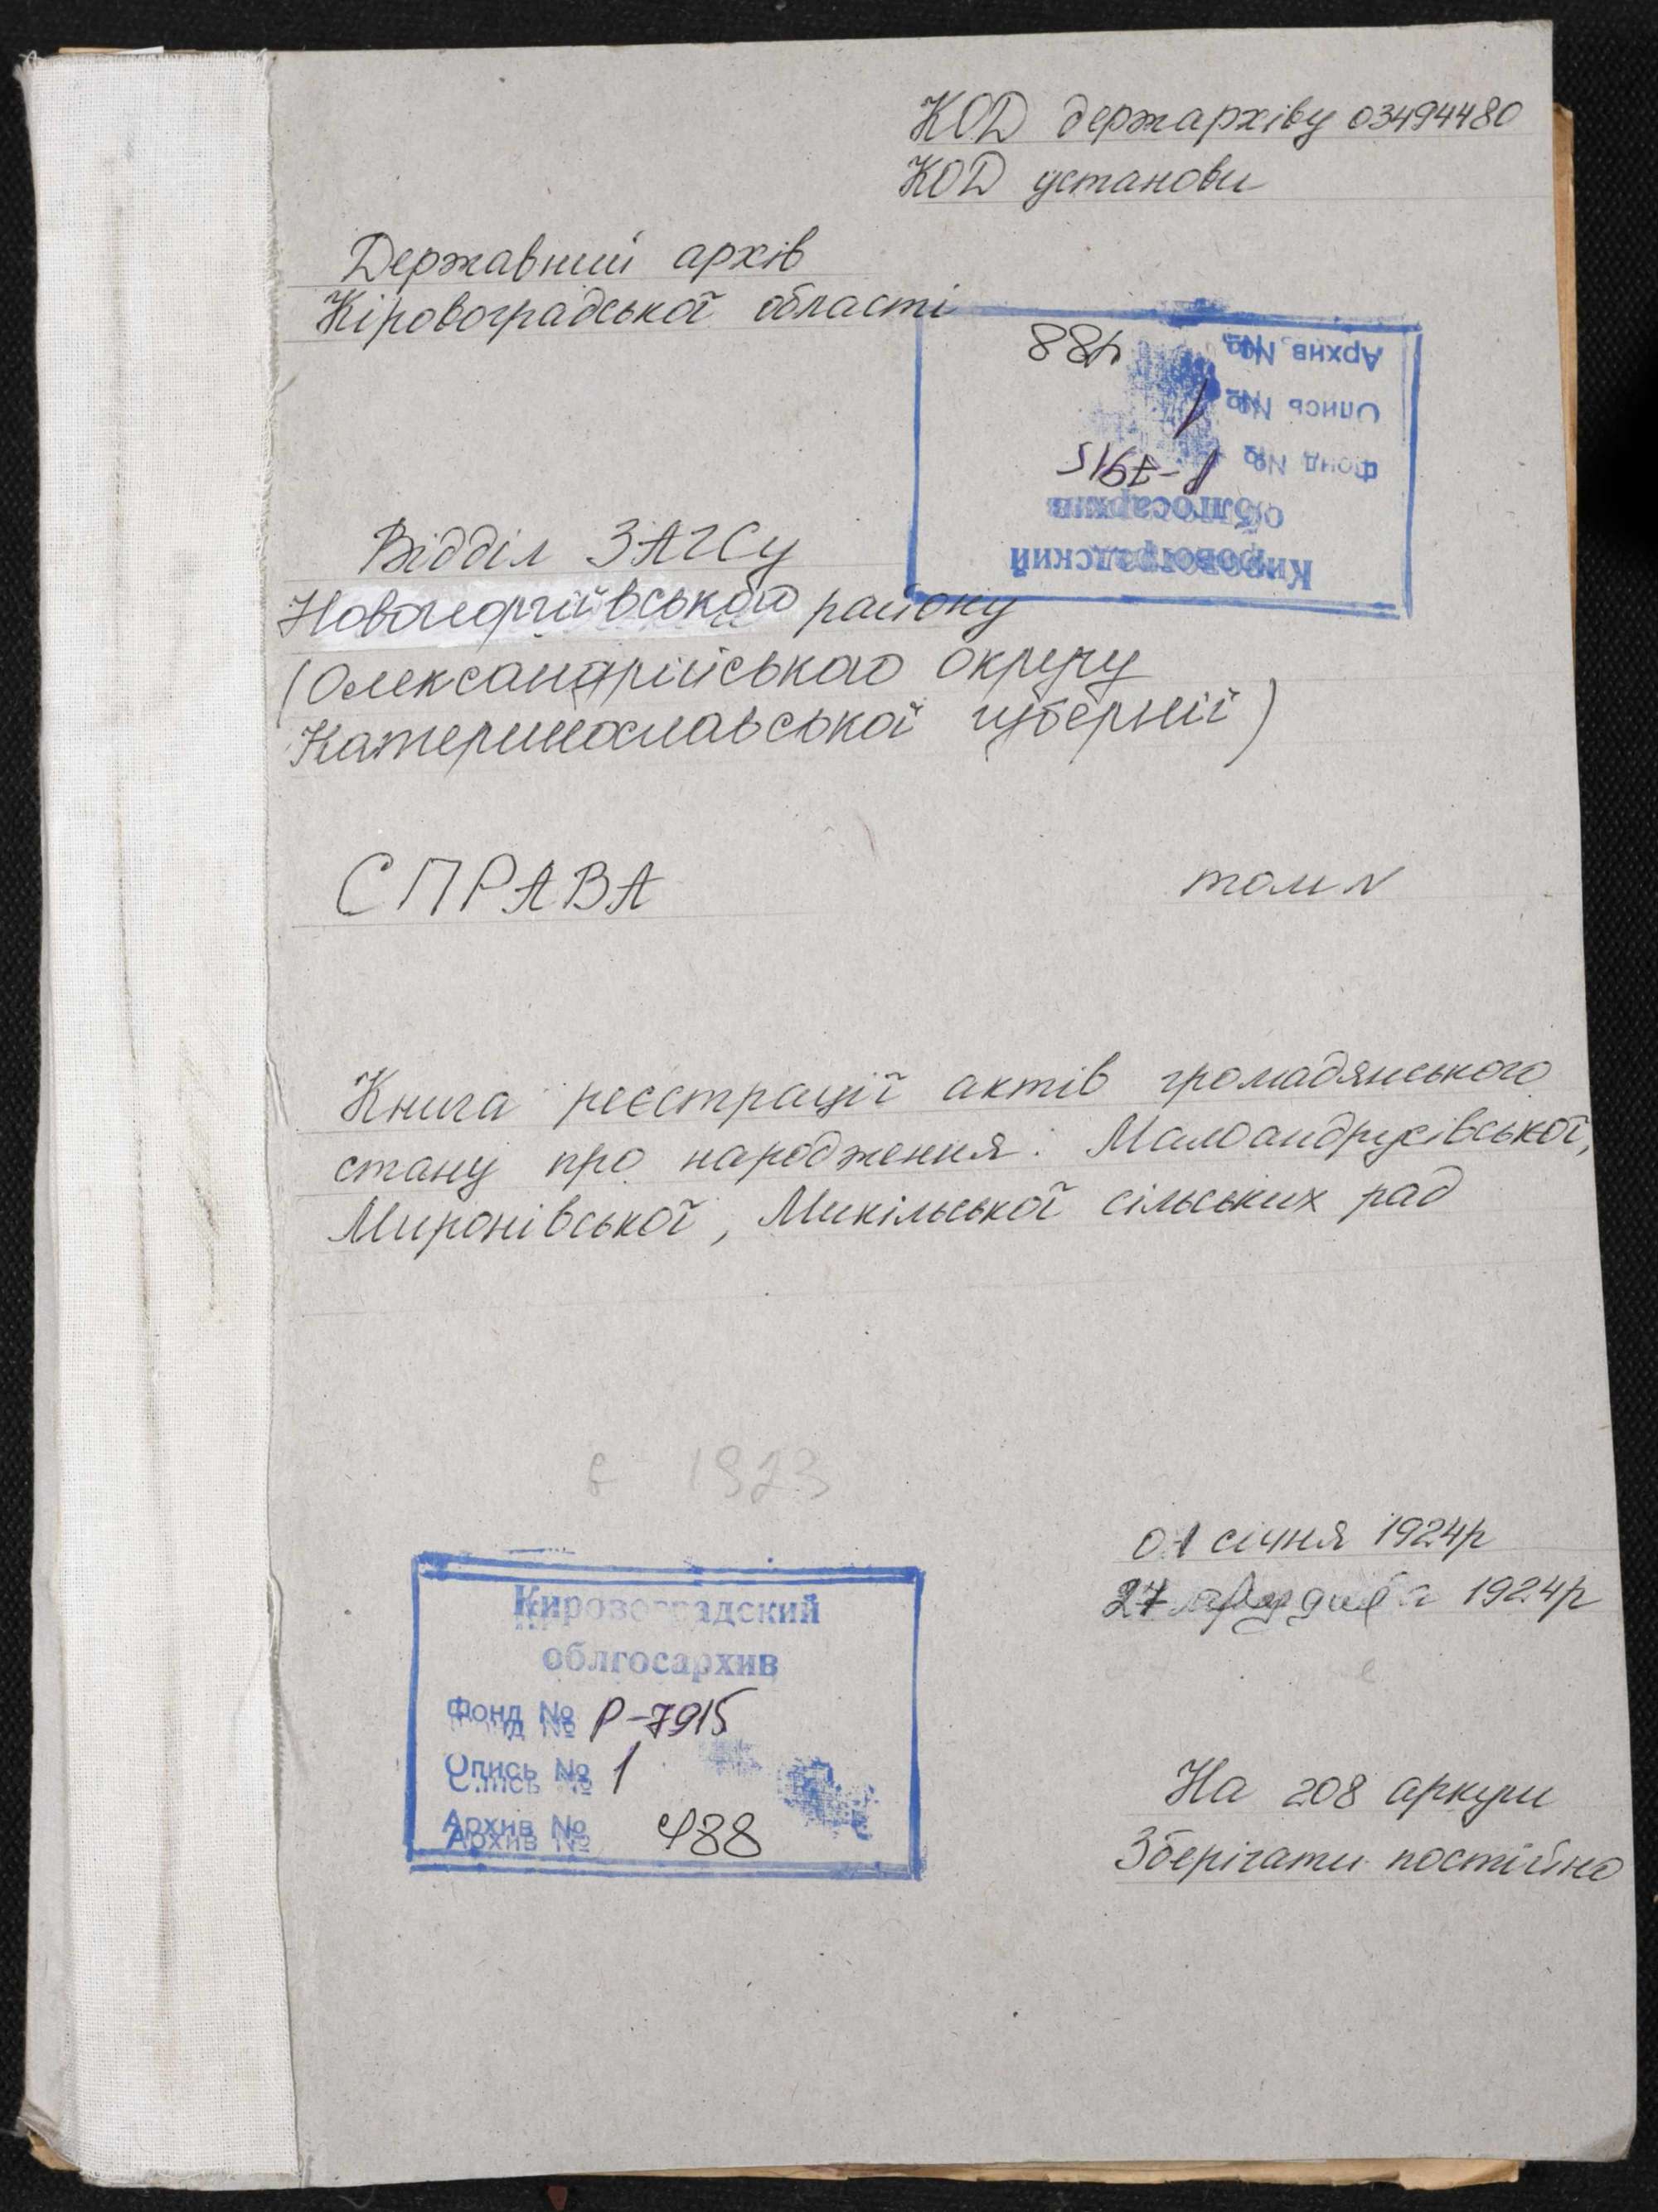 КОД держархіву 03494480
КОД установи
Державний архів
Кіровоградської області
Архив № 488
Опись № 1
Фонд № Р-7915
облгосархив
Кировоградский
Відділ ЗАГСу
Новогеоргіївського району
(Олександрійського округу
Катеринославської губернії)
СПРАВА том N
Книга реєстрації актів громадянського
стану про народження: Малоандрусівської,
Миронівської, Микільської сільських рад
є 1923
01 січня 1924р
27 грудня 1924р
Кировоградский
облгосархив
Фонд № Р-7915
Опись № 1
Архив № 488
На 208 аркуш
Зберігати постійно